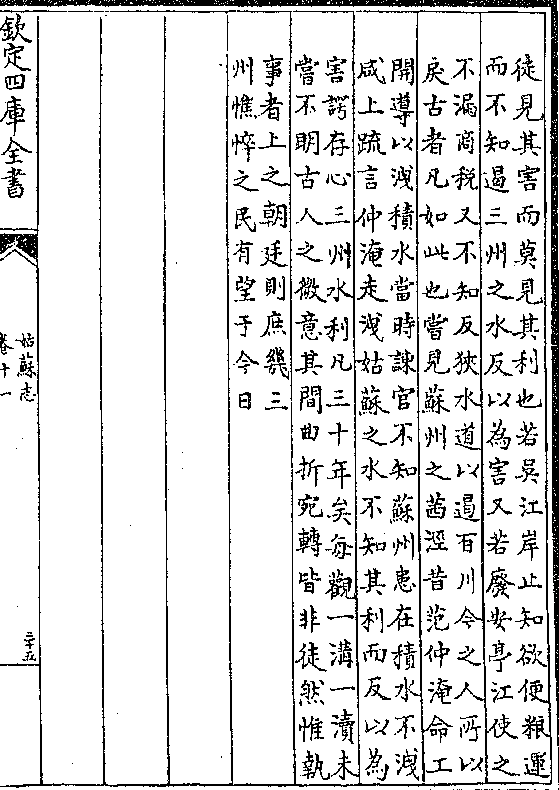 徒見其害而莫見其利也若吳江岸止知欲便粮運
而不知遏三州之水反以為害又若廢安亭江使之
不漏商税又不知反狹水道以遏百川今之人所以
戾古者凡如此也嘗見蘇州之茜涇昔范仲淹命工
開導以洩積水當時諫官不知蘇州患在積水不洩
咸上疏言仲淹走洩姑蘇之水不知其利而反以為
害諤存心三州水利凡三十年矣每觀一溝一瀆未
嘗不明古人之微意其間曲折宛轉皆非徒然惟執
事者上之朝廷則庶幾三
州憔悴之民有望于今日
欽定四庫全書
姑蘇志
卷十一
二十五